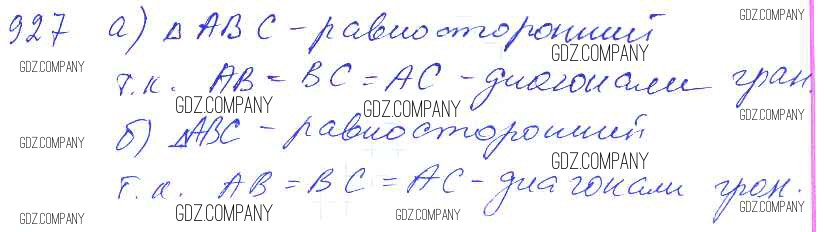 927 а) △ ABC – равносторонний
т.к. AB = BC = AC – диагонали гран.
б) △ABC – равносторонний
т.к. AB = BC = AC – диагонали гран.
GDZ.COMPANY
GDZ.COMPANY
GDZ.COMPANY
GDZ.COMPANY
GDZ.COMPANY
GDZ.COMPANY
GDZ.COMPANY
GDZ.COMPANY
GDZ.COMPANY
GDZ.COMPANY
GDZ.COMPANY
GDZ.COMPANY
GDZ.COMPANY